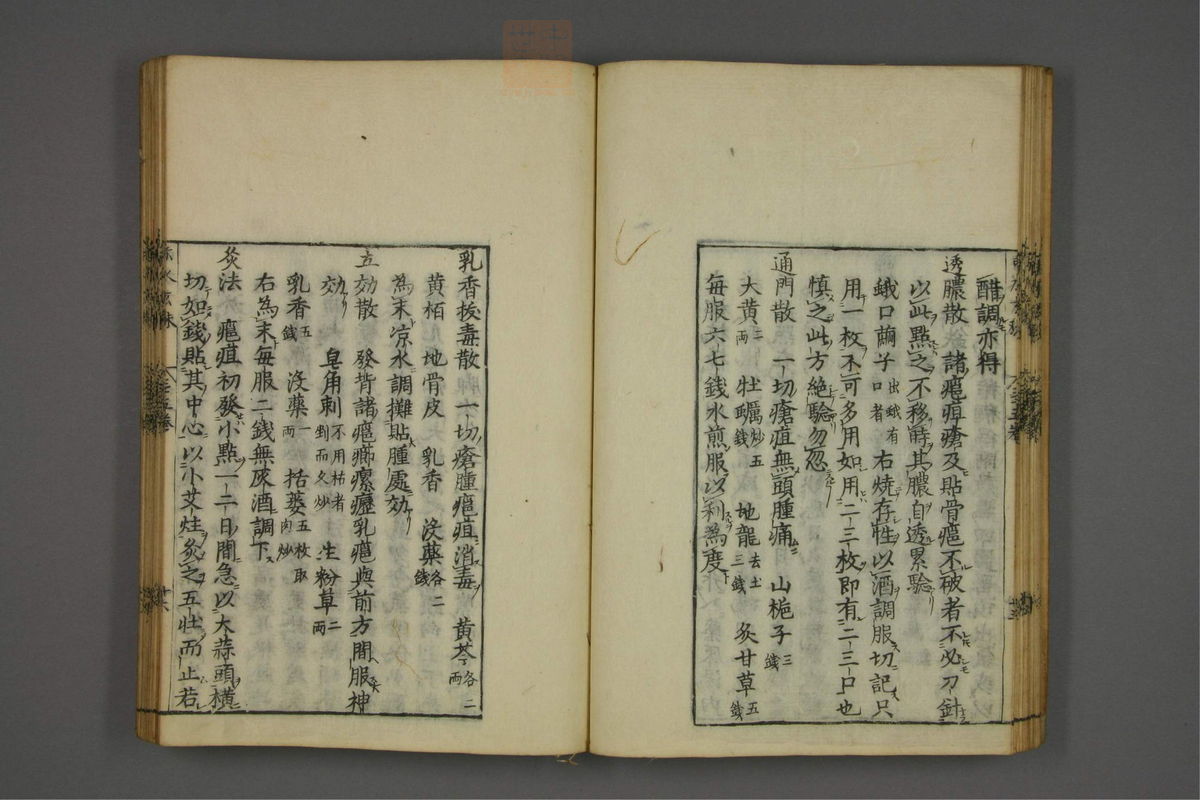 醋調亦得
透膿散 諸癰疽瘡及貼骨癰不破者不必刀針
以此點之不移時其膿自透累驗
蛾口繭子 出蛾有口者 右燒存性以酒調服切記只
用一枚不可多用如用二三枚即有二三口也
慎之此方絶驗勿忽
通門散 一切瘡疽無頭腫痛 山梔子 三錢
大黄 二兩 牡蠣 炒五錢 地龍 去土三錢 炙甘草 五錢
每服六七錢水煎服以利為度
乳香拔毒散 一切瘡腫癰疽消毒 黄芩 各二兩
黄栢 地骨皮 乳香 沒藥 各二錢
為末凉水調攤貼腫處効
立効散 發背諸癰癤瘰癧乳癰與前方間服神
効 皂角刺 不用枯者剉而久炒 生粉草 二兩
乳香 五錢 沒藥 一兩 括蔞 五枚取肉炒
右為末每服二錢無灰酒調下
灸法 癰疽初發小點一二日間急以大蒜頭橫
切如錢貼其中心以小艾炷灸之五壯而止若